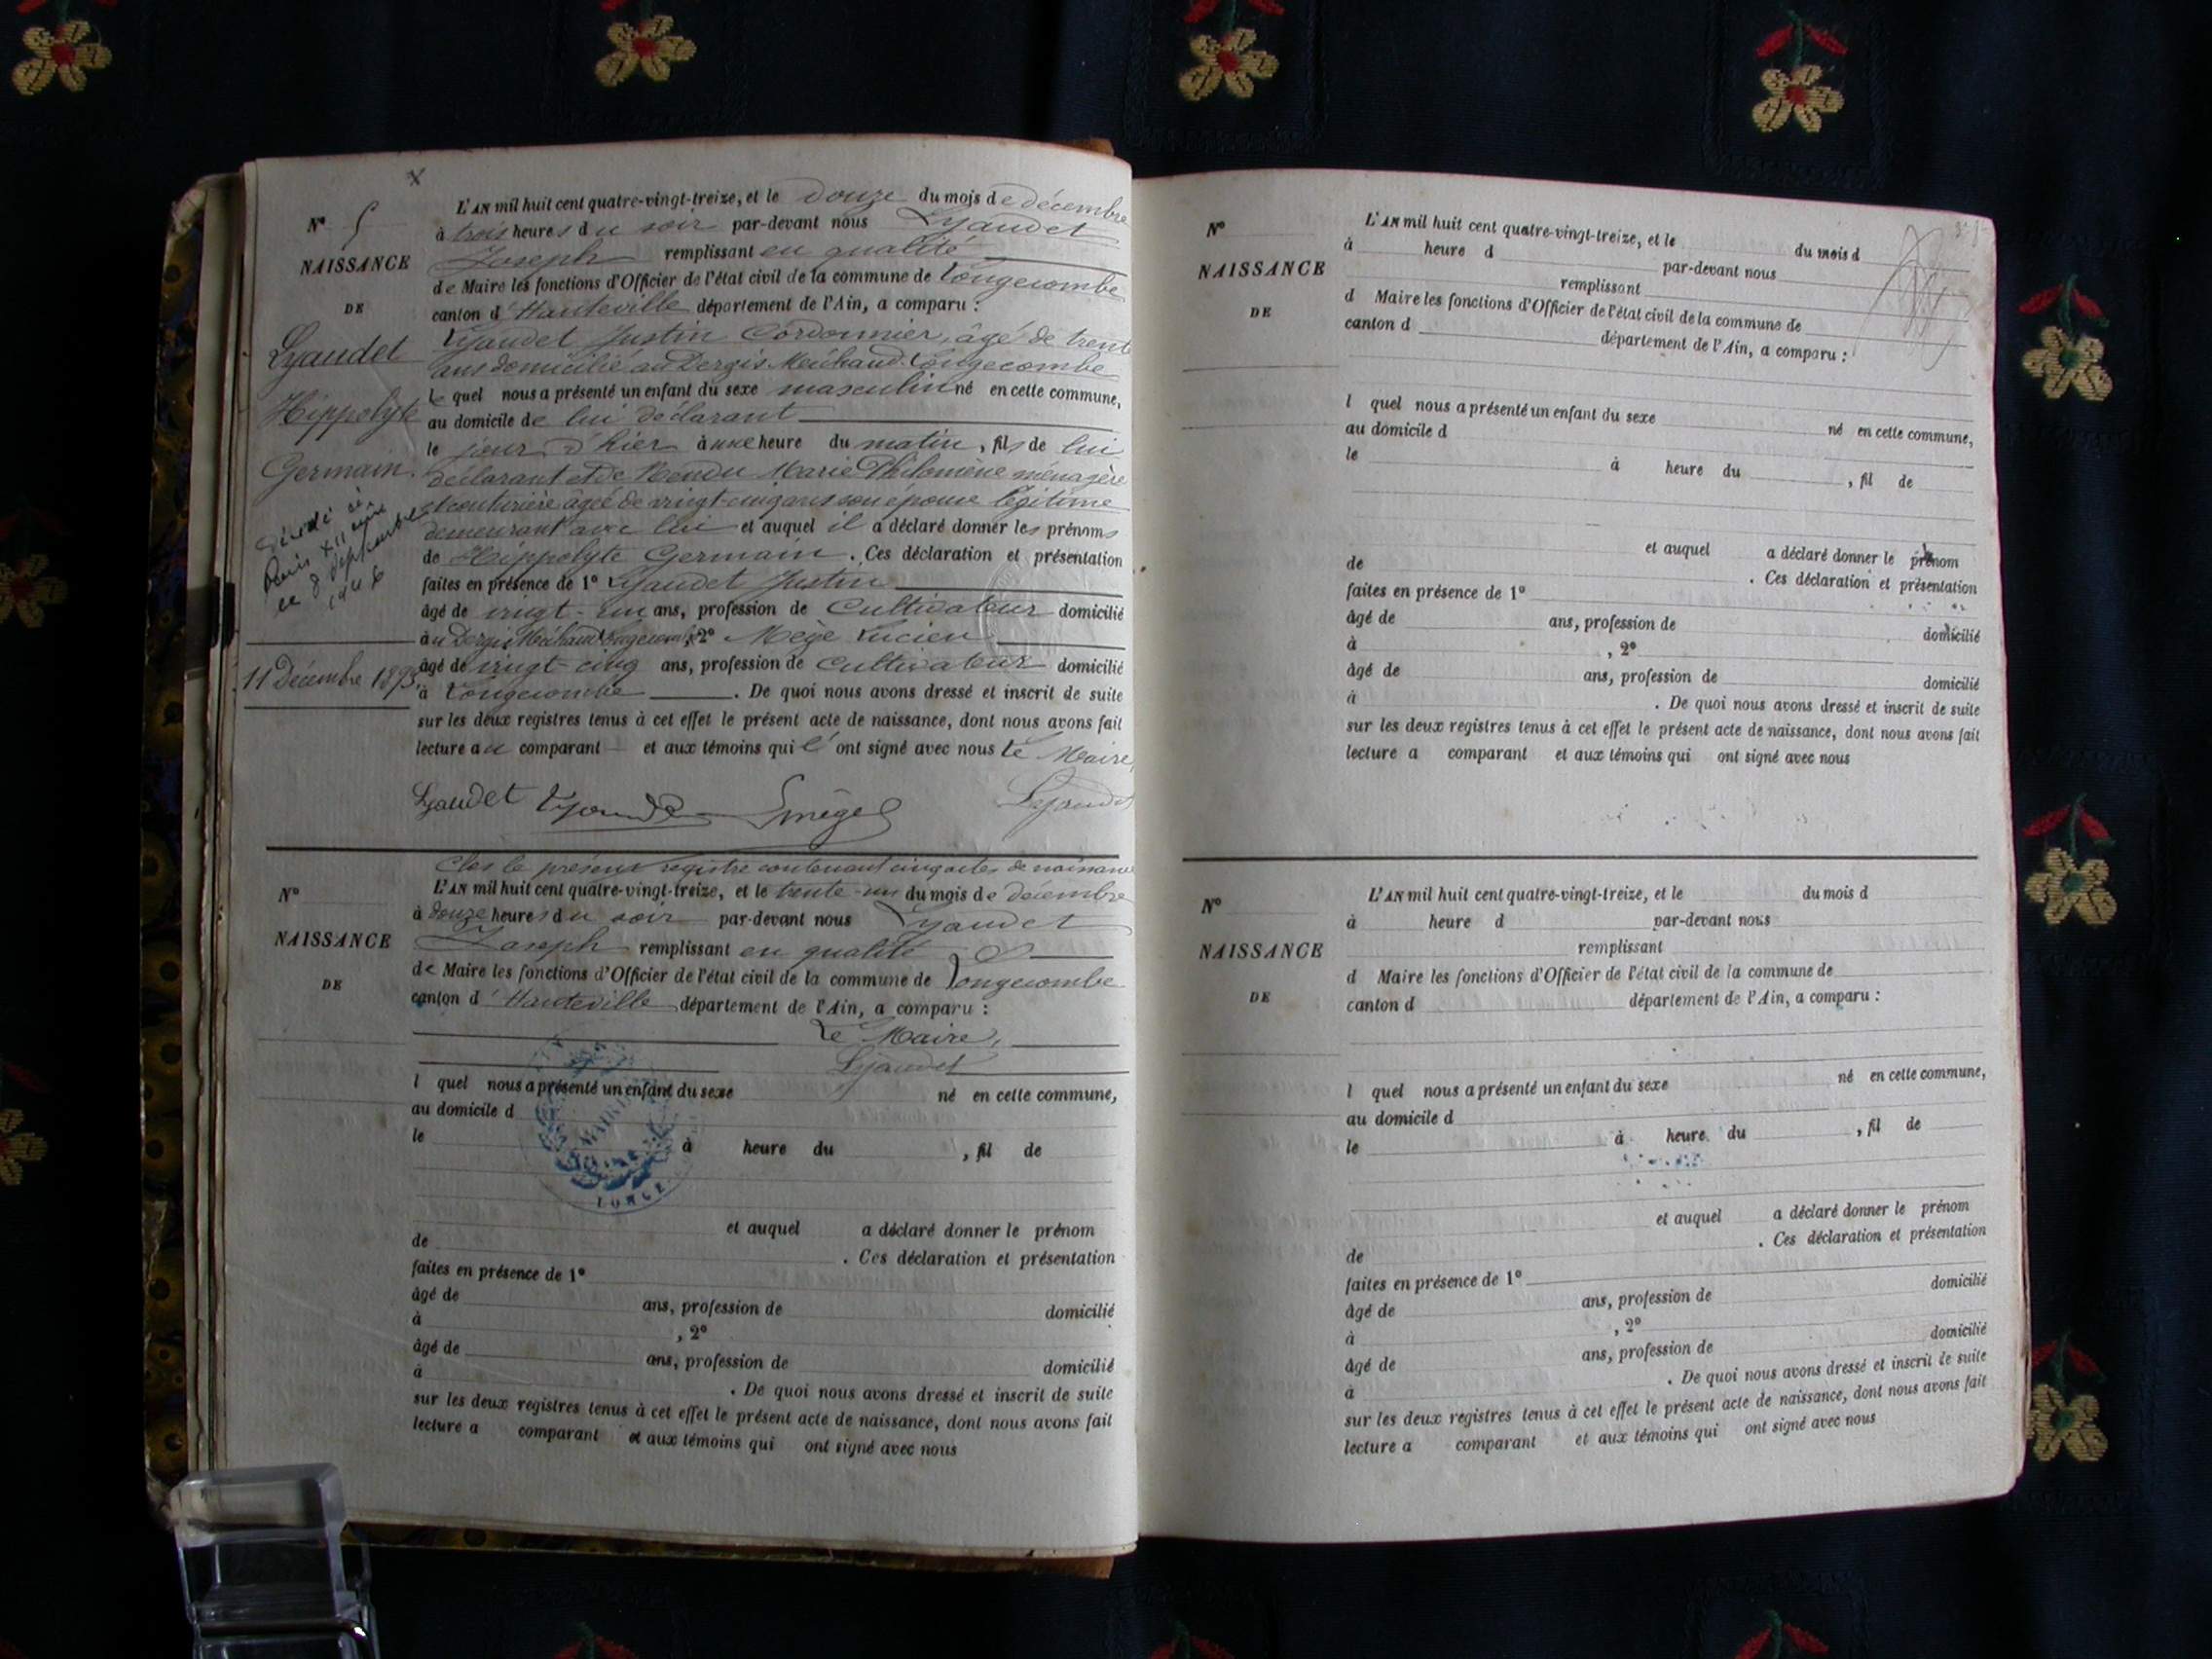 N° 5
NAISSANCE
DE
Lyaudet
Hippolyte
Germain.
décédé à
Paris XII ème
le 8 septembre
1946
11 Décembre 1893
L'AN mil huit cent quatre-vingt-treize, et le douze du mois de décembre
à trois heures du soir par-devant nous Lyaudet
Joseph remplissant en qualité
de Maire les fonctions d'Officier de l'état civil de la commune de Longecombe
canton d'Hauteville département de l'Ain, a comparu :
Lyaudet Justin Cordonnier, âgé de trente
ans domicilié au Dergis Longecombe
Le quel nous a présenté un enfant du sexe masculin né en cette commune,
au domicile de lui déclarant
le jour d'hier à une heure du matin, fils de lui
déclarant et de Marie Philomène ménagère
et couturière âgée de vingt-cinq ans son épouse légitime
demeurant avec lui et auquel il a déclaré donner les prénoms
de Hippolyte Germain. Ces déclaration et présentation
faites en présence de 1° Lyaudet Justin
âgé de vingt-un ans, profession de Cultivateur domicilié
au Dergis Longecombe, 2° Mège Lucien
âgé de vingt-cinq ans, profession de Cultivateur domicilié
à Longecombe. De quoi nous avons dressé et inscrit de suite
sur les deux registres tenus à cet effet le présent acte de naissance, dont nous avons fait
lecture au comparant et aux témoins qui l'ont signé avec nous Le Maire,
Lyaudet Lyaudet Lmège Lyaudet
N°
NAISSANCE
DE
Clos le présent registre contenant cinq actes de naissance
L'AN mil huit cent quatre-vingt-treize, et le trente-un du mois de décembre
à douze heures du soir par-devant nous Lyaudet
Joseph remplissant en qualité
de Maire les fonctions d'Officier de l'état civil de la commune de Longecombe
canton d'Hauteville département de l'Ain, a comparu :
Le Maire,
Lyaudet
l quel nous a présenté un enfant du sexe né en cette commune,
au domicile d
MAIRIE
le à heure du , fil de
LONGE
et auquel a déclaré donner le prénom
de . Ces déclaration et présentation
faites en présence de 1°
âgé de ans, profession de domicilié
à , 2°
âgé de ans, profession de domicilié
à . De quoi nous avons dressé et inscrit de suite
sur les deux registres tenus à cet effet le présent acte de naissance, dont nous avons fait
lecture a comparant et aux témoins qui ont signé avec nous
N°
NAISSANCE
DE
L'AN mil huit cent quatre-vingt-treize, et le du mois d
à heure d par-devant nous
remplissant
d Maire les fonctions d'Officier de l'état civil de la commune de
canton d département de l'Ain, a comparu :
l quel nous a présenté un enfant du sexe né en cette commune,
au domicile d
le à heure du , fil de
et auquel a déclaré donner le prénom
de . Ces déclaration et présentation
faites en présence de 1°
âgé de ans, profession de domicilié
à , 2°
âgé de ans, profession de domicilié
à . De quoi nous avons dressé et inscrit de suite
sur les deux registres tenus à cet effet le présent acte de naissance, dont nous avons fait
lecture a comparant et aux témoins qui ont signé avec nous
N°
NAISSANCE
DE
L'AN mil huit cent quatre-vingt-treize, et le du mois d
à heure d par-devant nous
remplissant
d Maire les fonctions d'Officier de l'état civil de la commune de
canton d département de l'Ain, a comparu :
l quel nous a présenté un enfant du sexe né en cette commune,
au domicile d
le à heure du , fil de
et auquel a déclaré donner le prénom
de . Ces déclaration et présentation
faites en présence de 1°
âgé de ans, profession de domicilié
à , 2°
âgé de ans, profession de domicilié
à . De quoi nous avons dressé et inscrit de suite
sur les deux registres tenus à cet effet le présent acte de naissance, dont nous avons fait
lecture a comparant et aux témoins qui ont signé avec nous